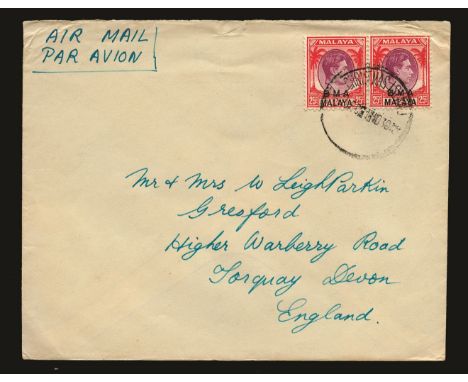 AIR MAIL
PAR AVION
MALAYA MALAYA
B M A
MALAYA MALAYA
25 25 25
Mr & Mrs W Leigh Parkin
Gresford
Higher Warberry Road
Torquay Devon
England.